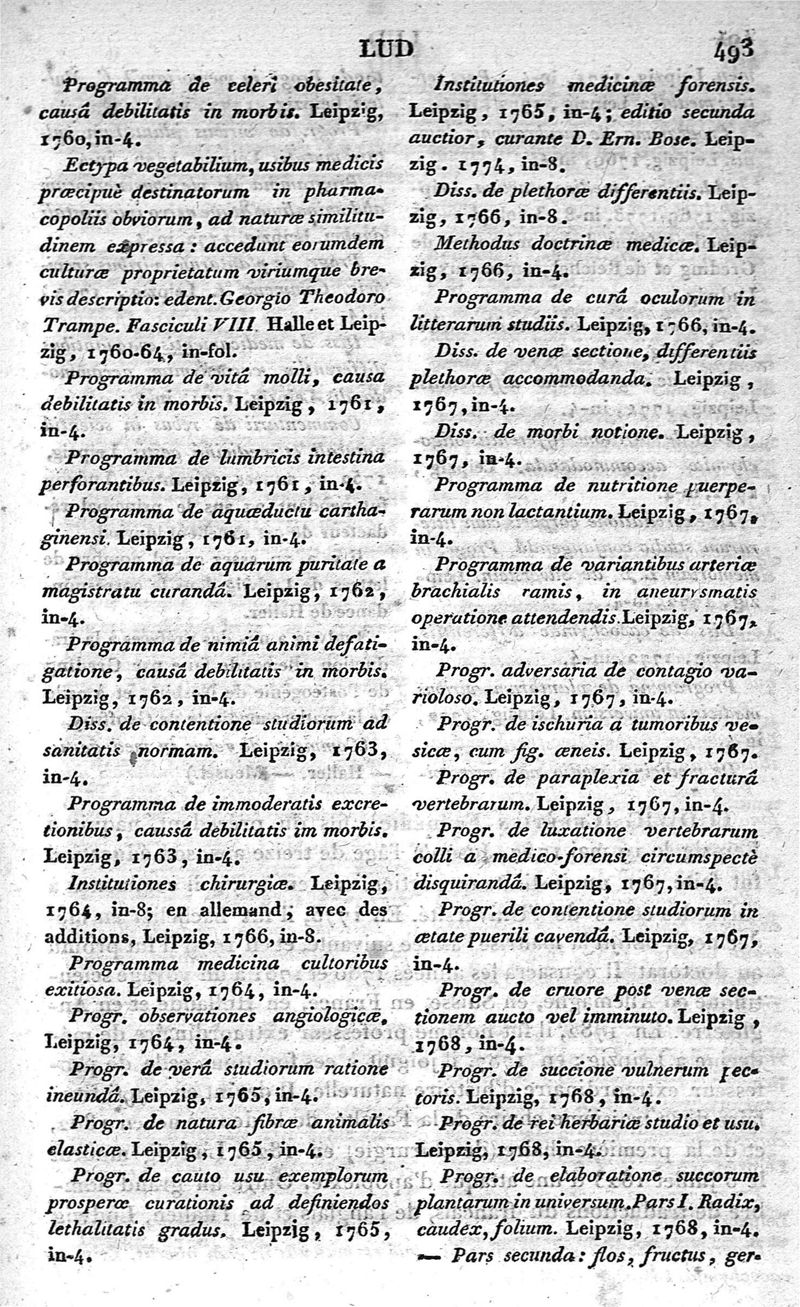 LUD 493
Programma de celeri obesitate,
causâ debilitatis in morbis. Leipzig,
1760, in-4.
Ectypa vegetabilium, usibus medicis
præcipuè destinatorum in pharma-
copoliis obviorum, ad naturæ similitu-
dinem expressa : accedunt eorumdem
culturæ proprietatum viriumque bre-
vis descriptio: edent. Georgio Theodoro
Trampe. Fasciculi VIII. Halle et Leip-
zig, 1760-64, in-fol.
Programma de vitâ molli, causa
debilitatis in morbis. Leipzig, 1761,
in-4.
Programma de lumbricis intestina
perforantibus. Leipzig, 1761, in-4.
Programma de aquæductu cartha-
ginensi. Leipzig, 1761, in-4.
Programma de aquarum puritate a
magistratu curandâ. Leipzig, 1762,
in-4.
Programma de nimiâ animi defati-
gatione, causâ debilitatis in morbis.
Leipzig, 1762, in-4.
Diss. de contentione studiorum ad
sanitatis normam. Leipzig, 1763,
in-4.
Programma de immoderatis excre-
tionibus, caussâ debilitatis im morbis.
Leipzig, 1763, in-4.
Institutiones chirurgiæ. Leipzig,
1764, in-8; en allemand, avec des
additions, Leipzig, 1766, in-8.
Programma medicina cultoribus
exitiosa. Leipzig, 1764, in-4.
Progr. observationes angiologicæ,
Leipzig, 1764, in-4.
Progr. de verâ studiorum ratione
ineundâ. Leipzig, 1765, in-4.
Progr. de natura fibræ animalis
elasticæ. Leipzig, 1765, in-4.
Progr. de cauto usu exemplorum
prosperæ curationis ad definiendos
lethalitatis gradus. Leipzig, 1765,
in-4.
Institutiones medicinæ forensis.
Leipzig, 1765, in-4; editio secunda
auctior, curante D. Ern. Bose. Leip-
zig. 1774, in-8.
Diss. de plethoræ differentiis. Leip-
zig, 1766, in-8.
Methodus doctrinæ medicæ. Leip-
zig, 1766, in-4.
Programma de curâ oculorum in
litterarum studiis. Leipzig, 1766, in-4.
Diss. de venæ sectione, differentiis
plethoræ accommodanda. Leipzig,
1767, in-4.
Diss. de morbi notione. Leipzig,
1767, in-4.
Programma de nutritione puerpe-
rarum non lactantium. Leipzig, 1767,
in-4.
Programma de variantibus arteriæ
brachialis ramis, in aneurysmatis
operatione attendendis. Leipzig, 1767,
in-4.
Progr. adversaria de contagio va-
rioloso. Leipzig, 1767, in-4.
Progr. de ischuria a tumoribus ve-
sicæ, cum fig. æneis. Leipzig, 1767.
Progr. de paraplexia et fracturâ
vertebrarum. Leipzig, 1767, in-4.
Progr. de luxatione vertebrarum
colli a medico-forensi circumspectè
disquirandâ. Leipzig, 1767, in-4.
Progr. de contentione studiorum in
ætate puerili cavendâ. Leipzig, 1767,
in-4.
Progr. de cruore post venæ sec-
tionem aucto vel imminuto. Leipzig,
1768, in-4.
Progr. de succione vulnerum pec-
toris. Leipzig, 1768, in-4.
Progr. de rei herbariæ studio et usu.
Leipzig, 1768, in-4.
Progr. de elaboratione succorum
plantarum in universum. Pars I. Radix,
caudex, folium. Leipzig, 1768, in-4.
— Pars secunda: flos, fructus, ger-